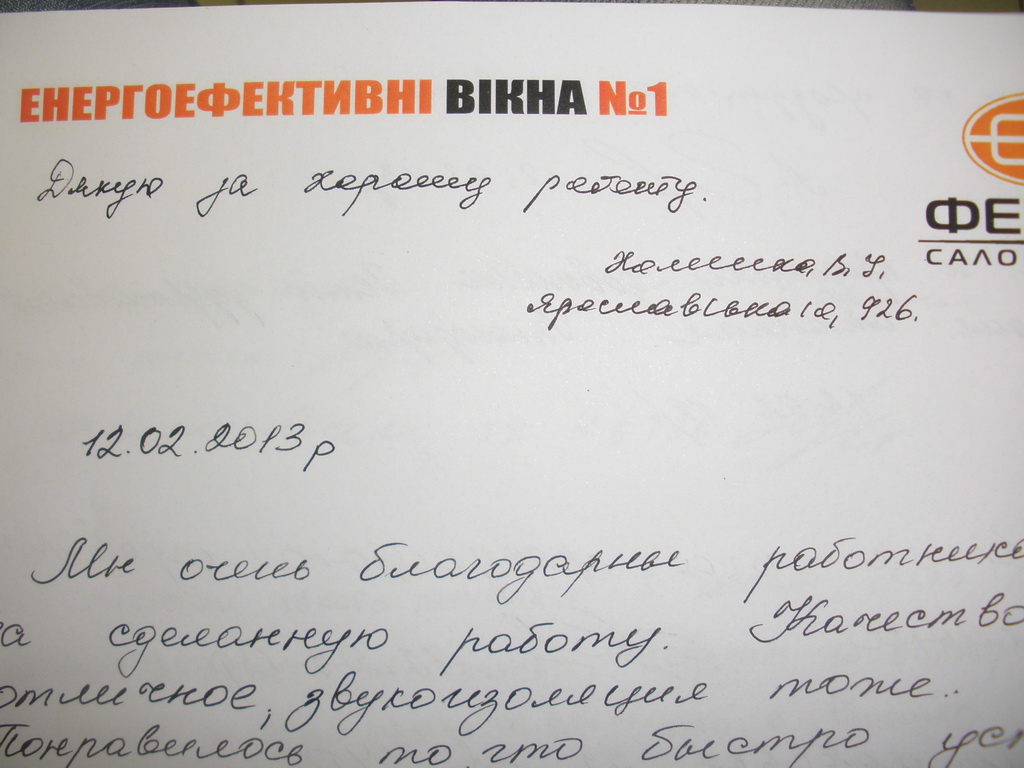 ЕНЕРГОЕФЕКТИВНІ ВІКНА №1
ФЕ
САЛО
Дякую за хорошу работу.
В. У.
Ярославська 926.
12.02.2013р
Мы очень благодарны работника
за сделанную работу. Качество
отличное, звукоизоляция тоже..
Понравилось то, что быстро уст